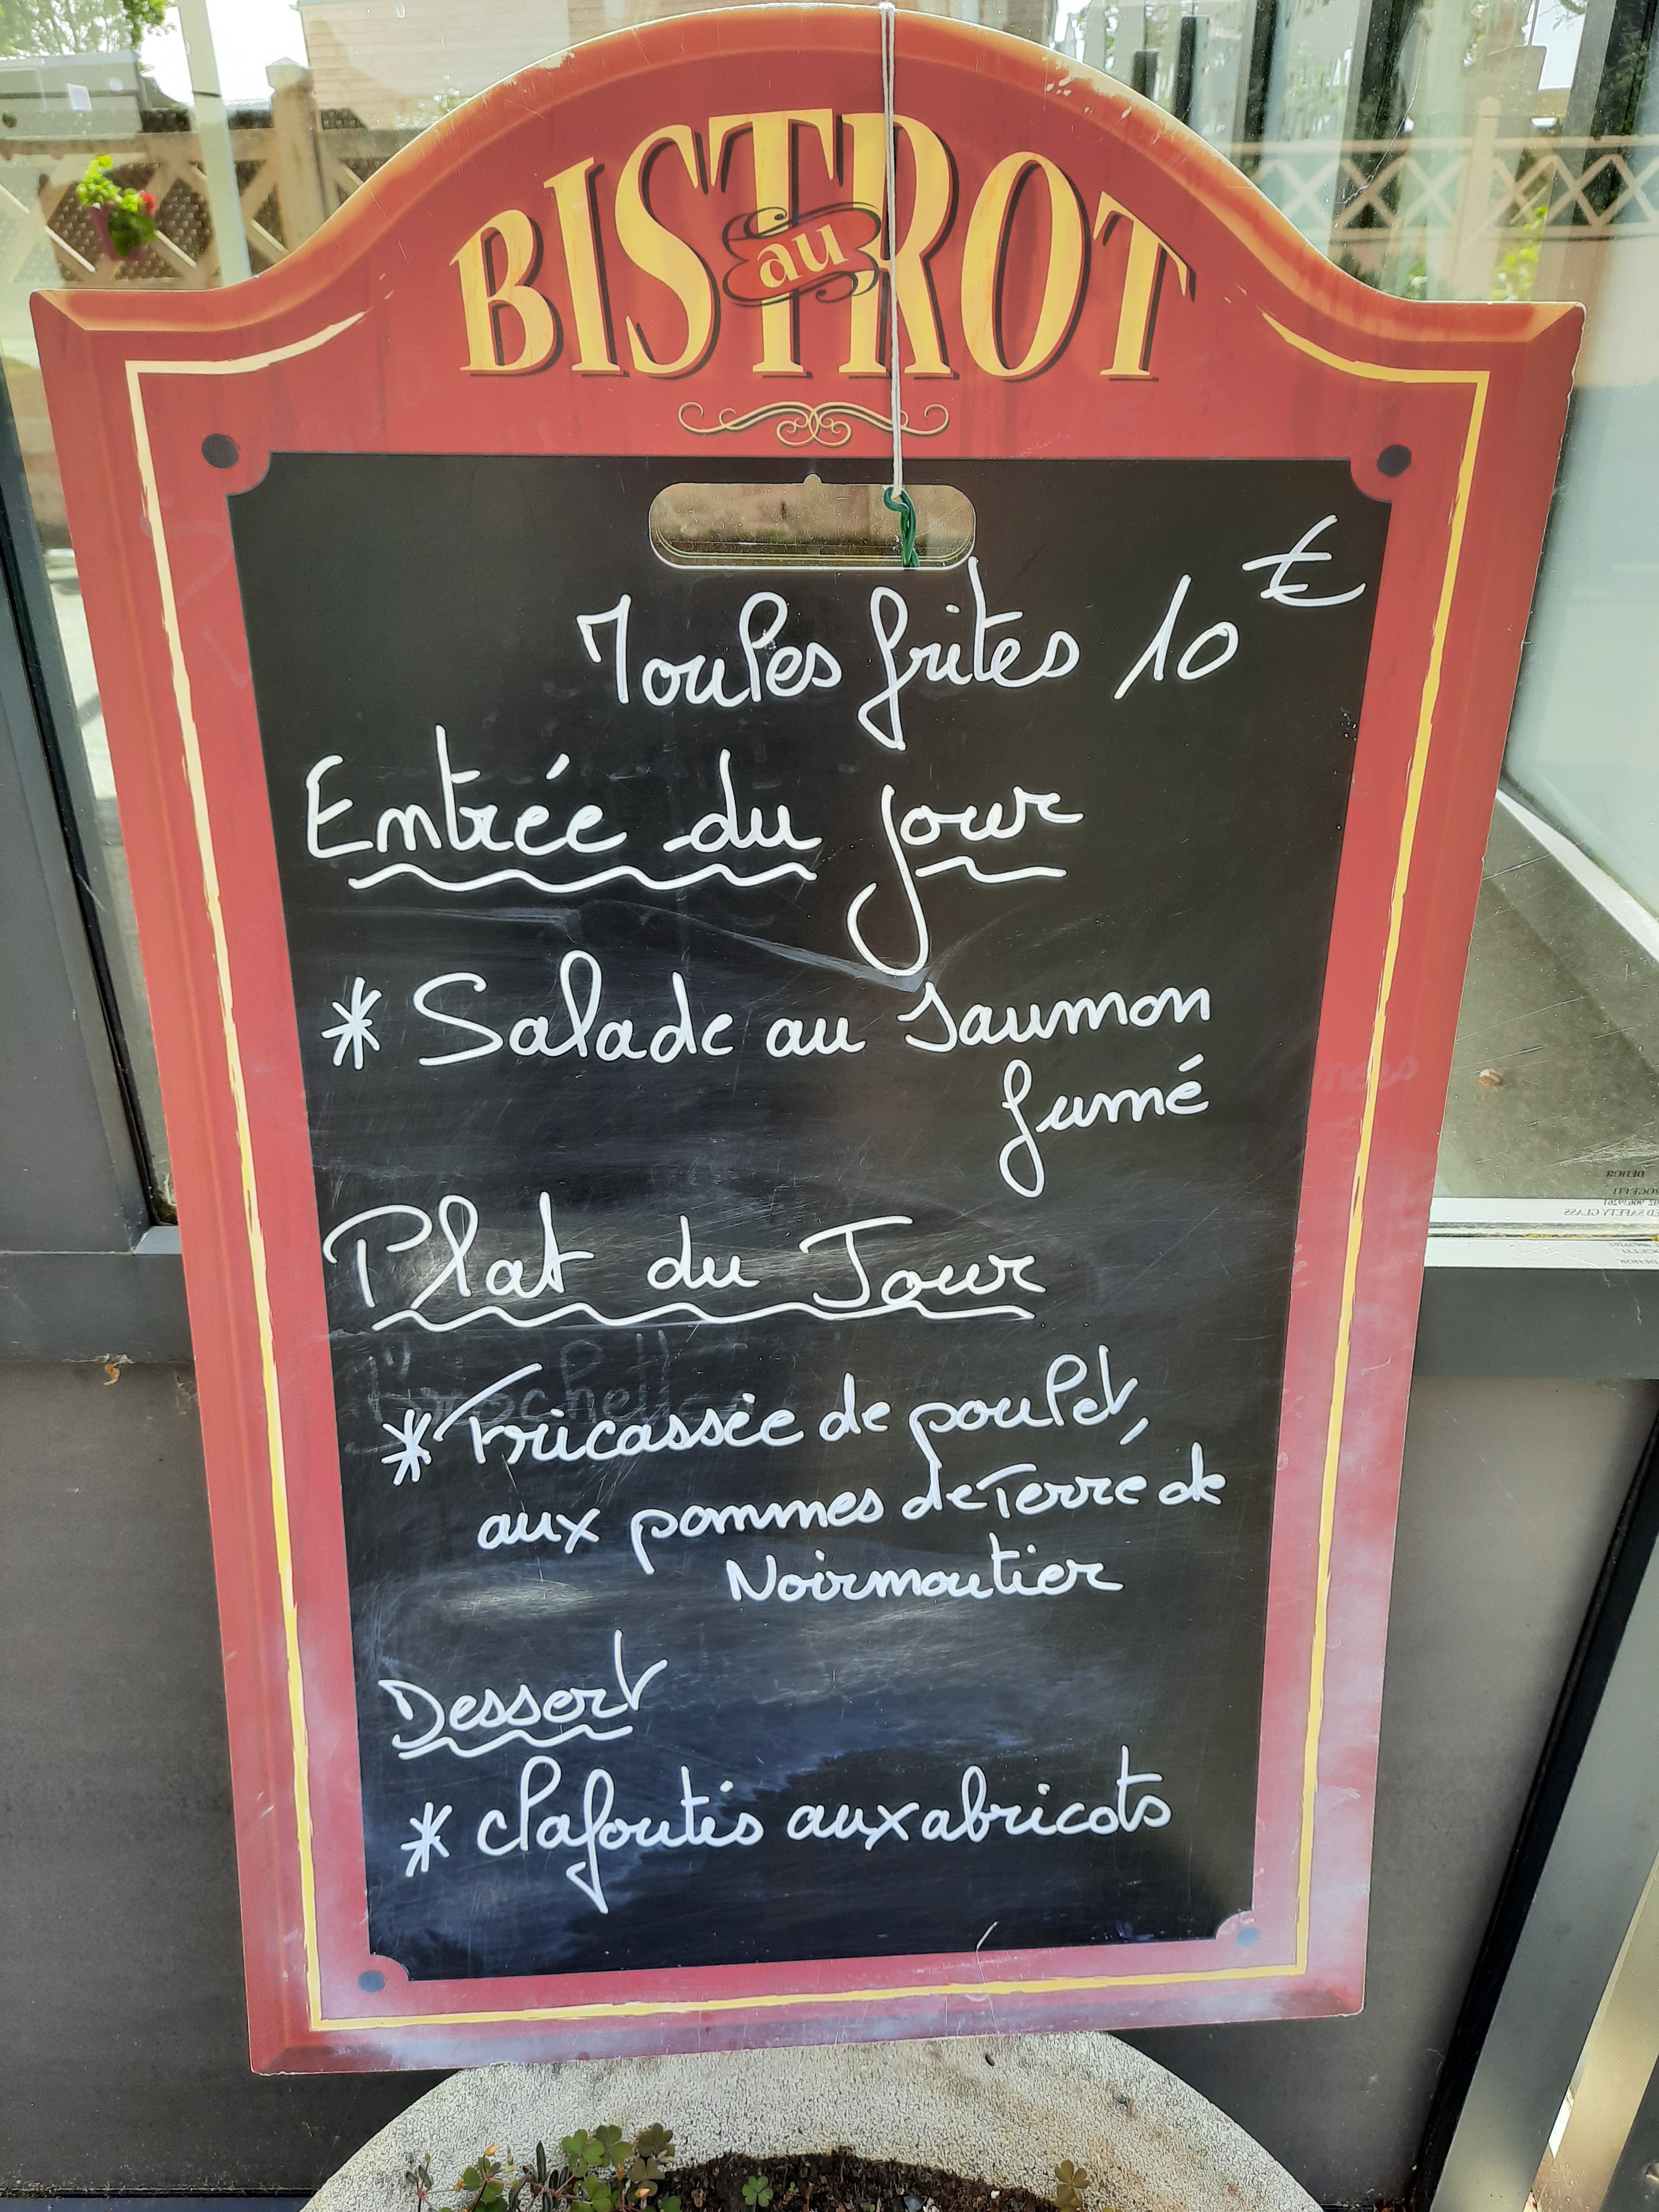 au
BISTROT
Moules frites 10 €
Entrée du jour
* Salade au saumon
fumé
Plat du Jour
* Fricassée de poulet,
aux pommes de Terre de
Noirmoutier
Dessert
* clafoutis aux abricots